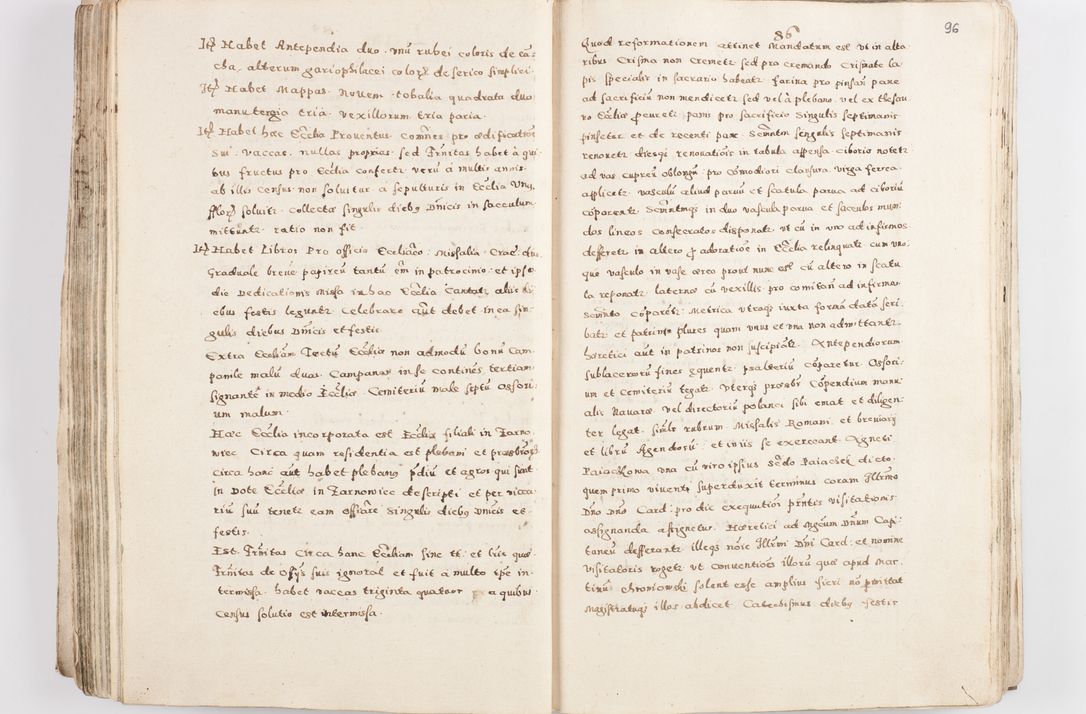 Itẽ Habet Antependia duo. unũ rubei coloris de
cha, alterum gariophilacei colorꝫ de serico simplici
Itẽ Habet Mappas. Novem. tobalia quadrata duo
manutergia tria. vexillorum tria paria.
Itẽ Habet hæc Ecclia Proventus coẽs pro ædificatiõe
sui. vaccas. nullas proprias sed Frñitas habet à qui
bus fructus pro Ecclia confertꝛ verũ à multis annis
ab illis census non solvitur à sepulturis in Ecclia
solvitꝛ. Collectæ singulis diebꝰ Dñicis in sacculum
mittuntꝛ ratio non fit.
Itẽ Habet Libros Pro officio Missalia. Crac. duo
Graduale breve papireũ tantũ in patrocinio. et ipso
die Dedicationis Missa in hac Ecclia Cantatꝛ aliis di
ebus festis leguntꝛ Celebrare aũt debet in ea sin
gulis diebus Dñicis et festis.
Extra Eccliam Tectũ Ecclię non admodũ bonũ Cam
panile malũ duas. Campanas in se continẽs, tertiam
signantẽ in medio Ecclię. Cemiteriũ male septũ Ossori
um malum.
Hæc Ecclia incorporata est Ecclię filiali in Zarno
wiec. Circa quam residentia est plebani et
Circa hanc aũt habet plebanꝰ pdiũ et agros qui sunt
in Dote Ecclię in Zarnowiec descripti et per vica
riũ suũ tenetꝛ eam singulis diebꝰ Dñicis et
festis.
Est Frñitas Circa hanc Eccliam sine tt. et
Frñitas de suis ignorat et fuit a multo tpẽ in
termissa. habet vaccas triginta quatuor a quibus
Census solutio est intermissa.
86
96
Quod reformationem attinet Mandatum est ut in alta
ribus Crisma non Cremetꝛ sed pro cremando Crismate la
pis specialis in sacrario habeatꝛ. farina pro pane
ad sacrificiũ non mendicetꝛ sed vel à plebano. vel ex thesau
ro Ecclię pcuretꝛ panis pro sacrificio singulis septimanis
pinsetur et de recenti pane singulis septimanis
renovetꝛ diesqꝫ renovatiõis in tabula appensa Ciborio notetꝛ.
ad vas cupreũ oblongũ pro comodiori clausura virga ferrea.
applicetꝛ vasculũ aliud parvũ et scatula parva ad ciboriũ
cõparentꝛ in duo vascula parva et sacculos mun
dos lineos consecratos disponatꝛ ut cũ in uno ad infirmos
defferetꝛ in altero adoratiõe in Ecclia relinquatꝛ cum uno.
quẽ vasculo in vase æreo prout nunc est cũ altero in scatu
la reponatꝛ. laterna cũ vexillis pro comitatũ ad infirmos
cõparetꝛ. Metrica utraqꝫ iuxta formã datã scri
batꝛ et patrimi plures quam unus et una non admittantꝛ
hæretici aũt in patrinos non suscipiãtꝛ. Antependiorum
sublacerorũ fines psalteriũ cõparetur Ossori
um et Cemiteriũ tegatꝛ. Uterqꝫ Cõpendium manu
alis Navaræ vel directoriũ polanci sibi emat et diligen
ter legat. similr rubrum Missalis Romani et breviarij
et librũ Agendorũ. et in iis se exerceant. Agneti
Paiaczkowa una cũ viro ipsius Paiaczek dicto.
quem primo viventi superduxit terminus coram Illrmo
Dño Dño Card. pro die exequutiõis visitationis.
assignanda assignetur. Hæretici ad Capi
taneũ defferantꝛ illeqꝫ noĩe Illrmi Dñi Card. et nomine
visitatoris rogetꝛ ut Conventiões illorũ quæ apud Mar
tinũ Chronowski solent esse amplius fieri nõ pmittat
Magistratusqꝫ illos abdicet Catechismus diebꝰ festis